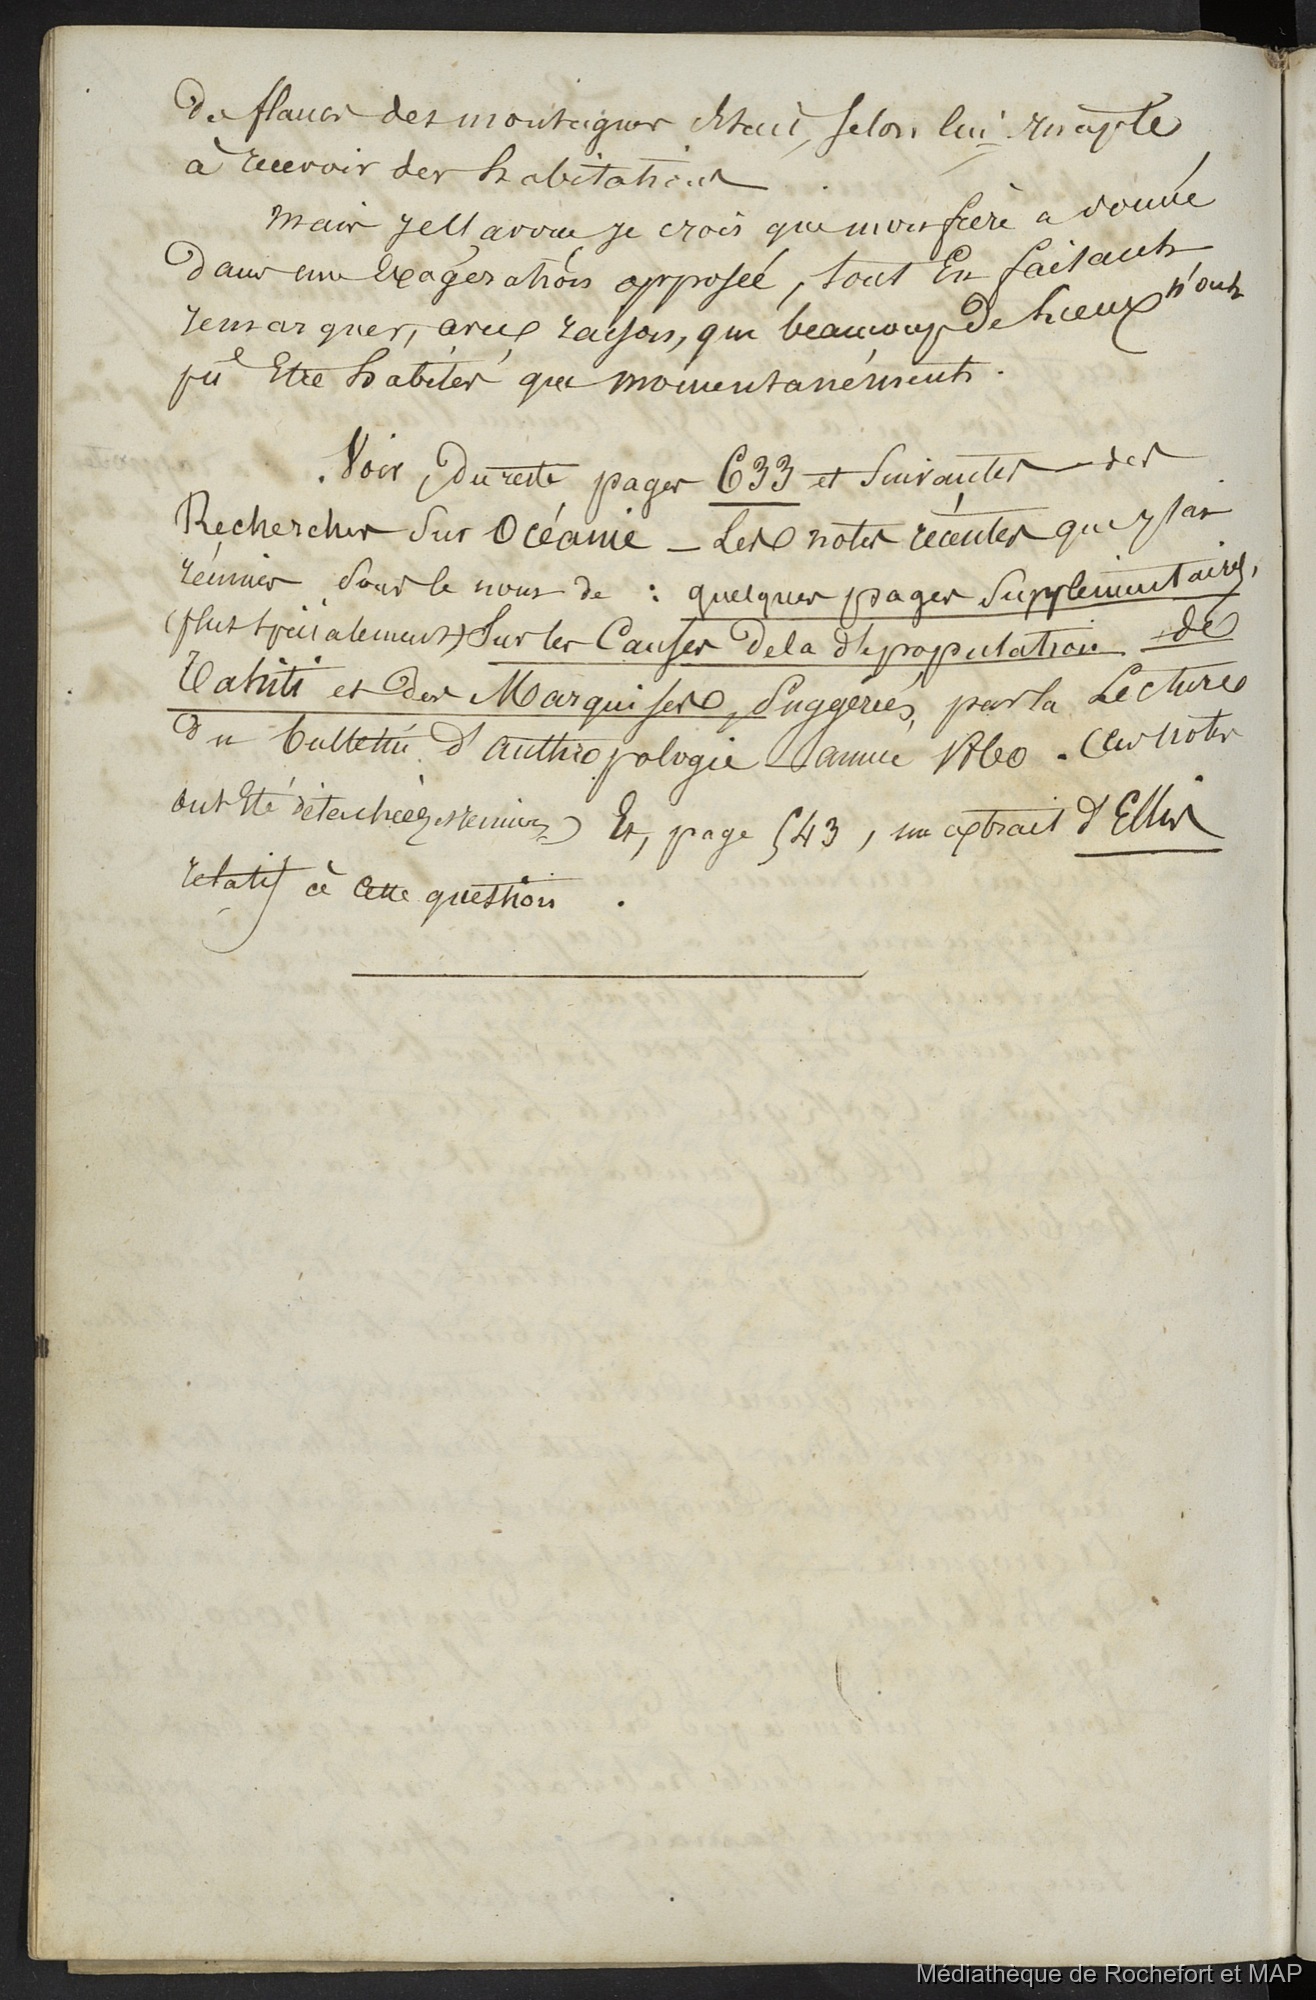 de flancs des montagnes était, selon lui inapte
à recevoir des habitations
Mais je l'avoue je crois que mon frère a donné
dans une Exagération opposée, tout En faisant
remarquer, avec raison, que beaucoup de lieux n'ont
pu Etre habités que momentanément.
Voir, du reste, pages 633 et suivantes des
Recherches sur Océanie — Les notes récentes que j'ai
réunies sous le nom de : quelques pages supplémentaires,
(plus spécialement) Sur les Causes de la dépopulation de
Tahiti et des Marquises, suggérées, par la Lecture
du bulletin d'anthropologie — année 1860. (Ces notes
ont été détachées et réunies) Et, page 543, un extrait d'Ellis
relatif à cette question.
Médiathèque de Rochefort et MAP